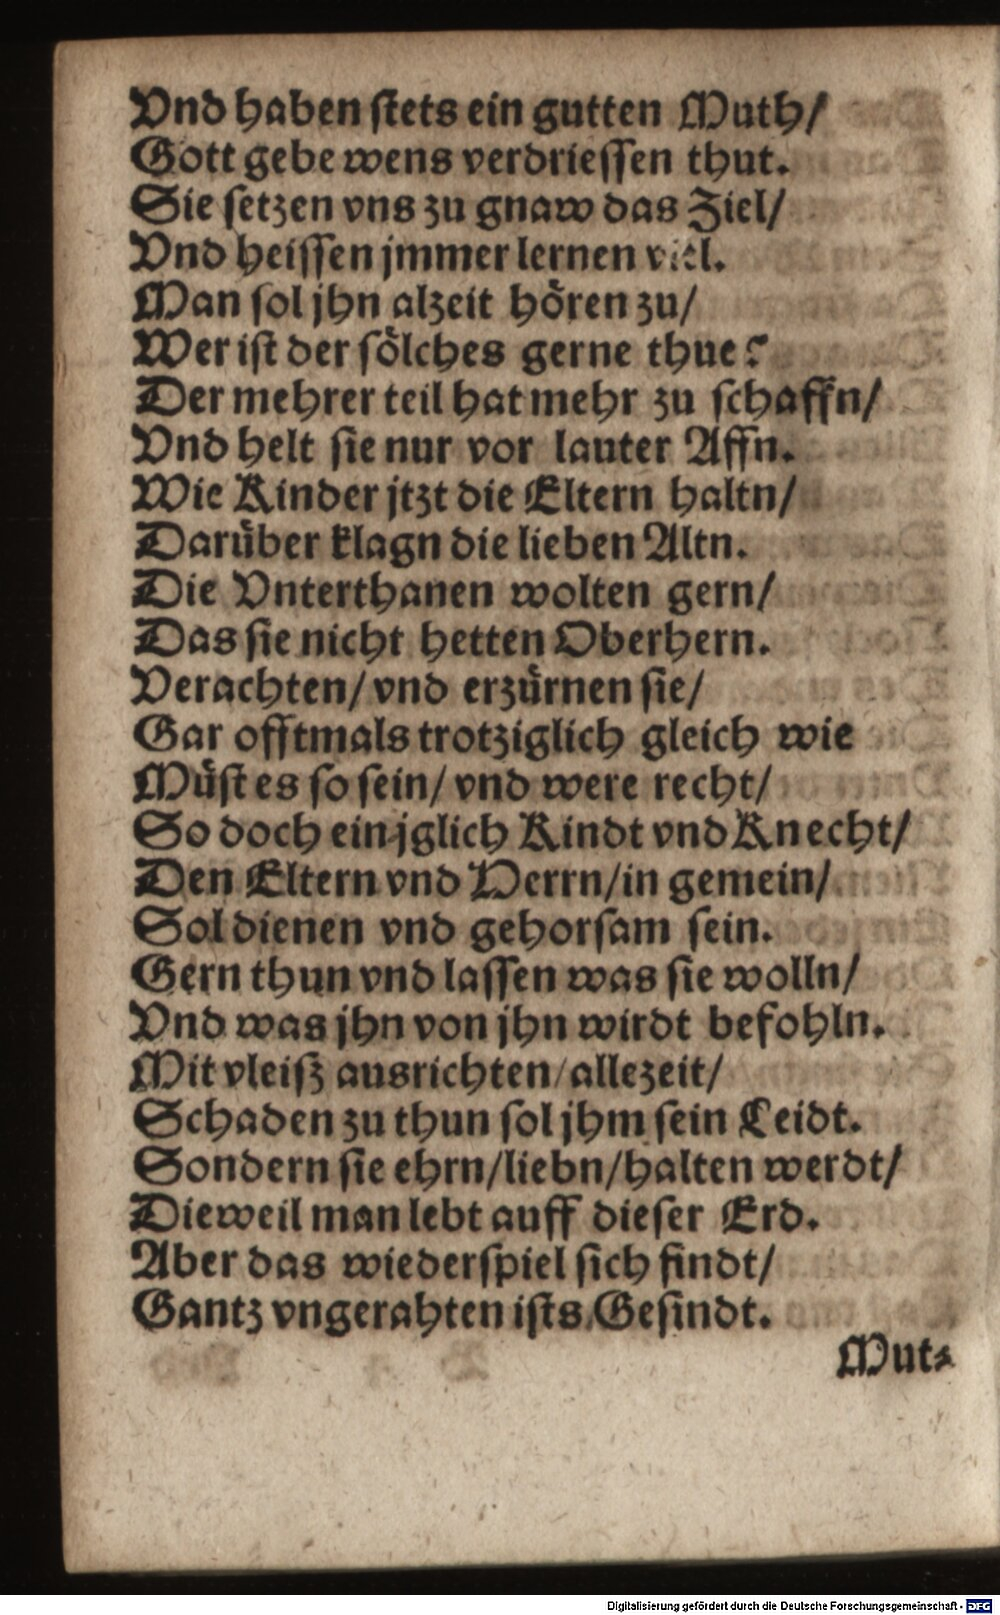 Vnd haben ſtets ein gutten Muth/
Gott gebe wens verdrieſſen thut.
Sie ſetzen vns zu gnaw das Ziel/
Vnd heiſſen jmmer lernen viel.
Man ſol jhn alzeit hören zu/
Wer iſt der ſölches gerne thue?
Der mehrer teil hat mehr zu ſchaffn/
Vnd helt ſie nur vor lauter Affn.
Wie Kinder jtzt die Eltern haltn/
Darüber klagn die lieben Altn.
Die Vnterthanen wolten gern/
Das ſie nicht hetten Oberhern.
Verachten/ vnd erzürnen ſie/
Gar offtmals trotziglich gleich wie
Müſt es ſo ſein/ vnd were recht/
So doch ein jglich Kindt vnd Knecht/
Den Eltern vnd Herrn/in gemein/
Sol dienen vnd gehorſam ſein.
Gern thun vnd laſſen was ſie wolln/
Vnd was jhn von jhn wirdt befohln.
Mit vleiſz ausrichten/allezeit/
Schaden zu thun ſol jhm ſein Leidt.
Sondern ſie ehrn/liebn/halten werdt/
Dieweil man lebt auff dieſer Erd.
Aber das wiederſpiel ſich findt/
Gantz vngerahten iſts Geſindt.
Mut⸗
Digitalisierung gefördert durch die Deutsche Forschungsgemeinschaft - DFG